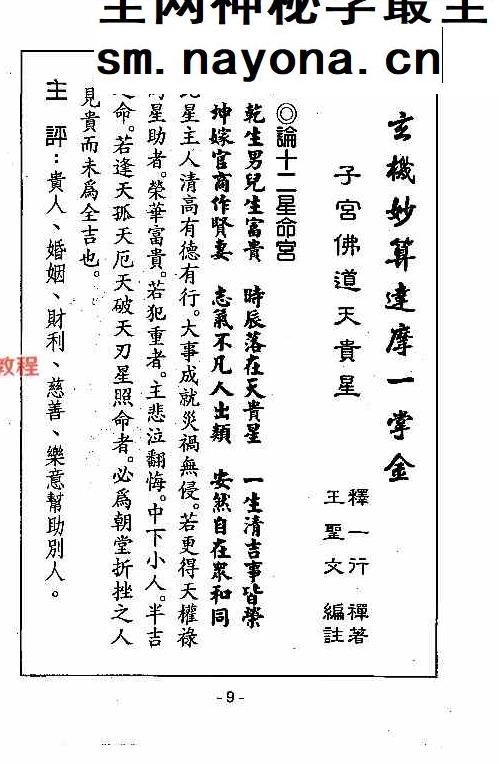 全网神秘学最全
sm.nayona.cn
玄機妙算達摩一掌金
子宮佛道天貴星
釋一行禪著
王聖文編註
◎論十二星命宮
乾生男兒生富貴 時辰落在天貴星 一生清吉事皆榮
坤嫁官商作賢妻 志氣不凡人出類 安然自在眾和同
星主人清高有德有行。大事成就災禍無侵。若更得天權祿
星助者。榮華富貴。若犯重者。主悲泣翻悔。中下小人。半吉
命。若逢天孤天厄天破天刃星照命者。必爲朝堂折挫之人
見貴而未爲全吉也。
主評：貴人、婚姻、財利、慈善、樂意幫助別人。
教程
-9-